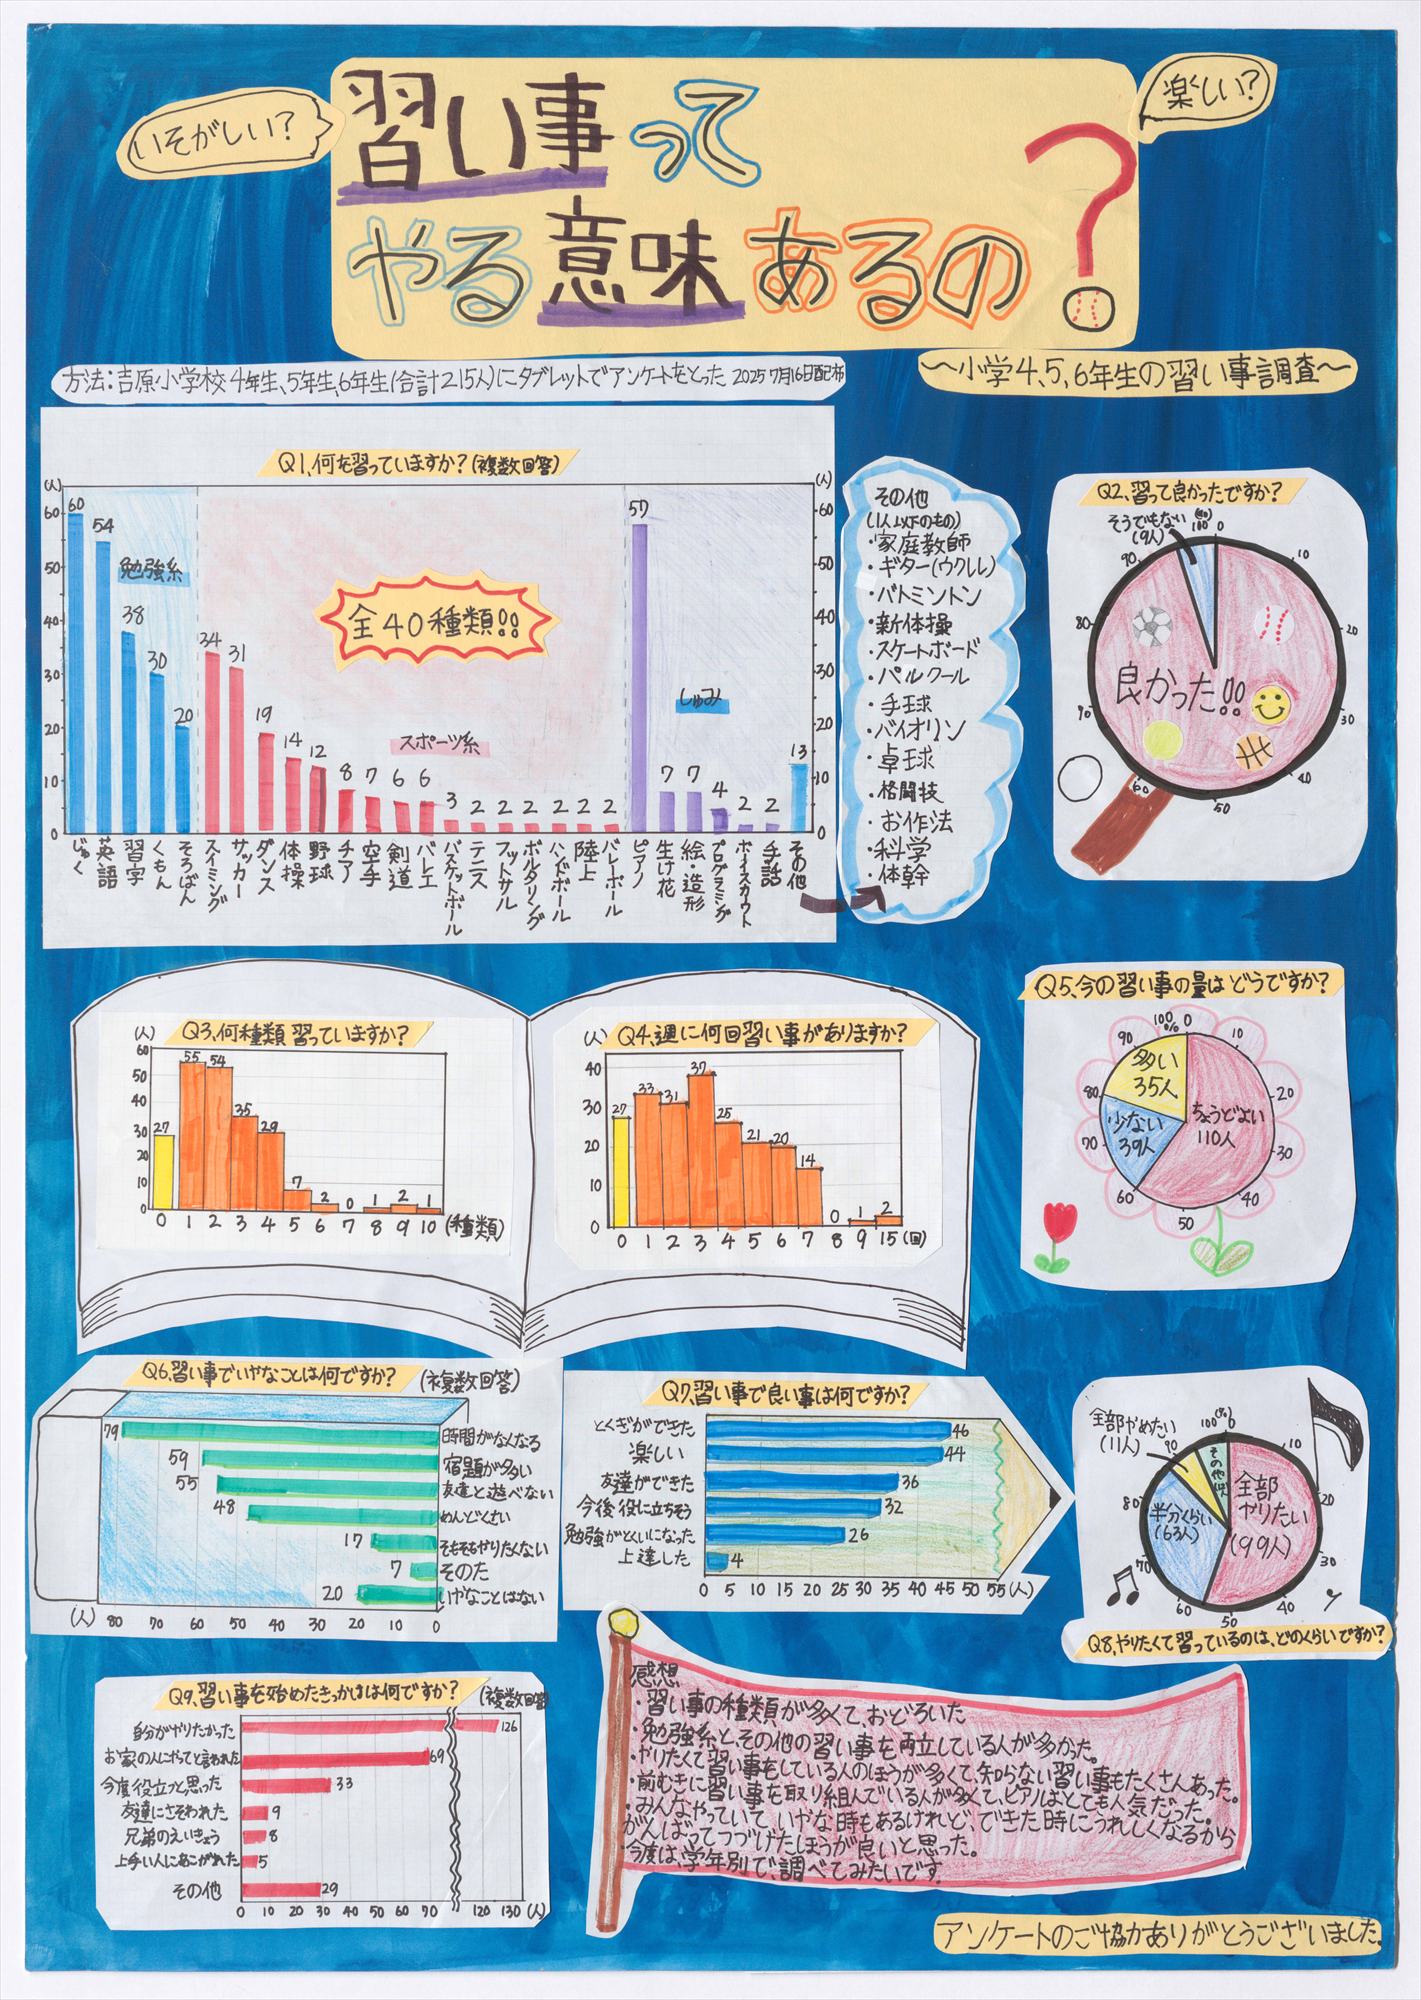 いそがしい?
習い事って
やる意味あるの?
楽しい?
方法:吉原小学校4年生、5年生、6年生(合計215人)にタブレットでアンケートをとった 2025 7月16日配布
〜小学4、5、6年生の習い事調査〜
Q1、何を習っていますか?(複数回答)
(人) (人)
60 50 40 30 20 10 0
60 50 40 30 20 10 0
勉強系
全40種類!!
スポーツ系
しゅみ
60 54 38 30 20 34 31 19 14 12 8 7 6 6 3 2 2 2 2 2 2 57 7 7 4 2 2 13
じゅく
英語
習字
くもん
そろばん
スイミング
サッカー
ダンス
体操
野球
チア
空手
剣道
バレエ
バスケットボール
テニス
フットサル
ボルダリング
ハンドボール
陸上
バレーボール
ピアノ
生け花
絵・造形
プログラミング
ボーイスカウト
手話
その他
その他
(1人以下のもの)
・家庭教師
・ギター(ウクレレ)
・バトミントン
・新体操
・スケートボード
・パルクール
・手球
・バイオリン
・卓球
・格闘技
・お作法
・科学
・体幹
Q2、習って良かったですか?
そうでもない
(9人)
(%)
100 0
10
20
30
40
50
60
90
80
90
良かった!!
Q3、何種類習っていますか?
(人)
60 50 40 30 20 10 0
27 55 54 35 29 7 2 0 1 2 1
0 1 2 3 4 5 6 7 8 9 10 (種類)
Q4、週に何回習い事がありますか?
(人)
40 30 20 10 0
27 33 31 37 25 21 20 14 0 1 2
0 1 2 3 4 5 6 7 8 9 15 (回)
Q5、今の習い事の量はどうですか?
100 0
%
10 20 30 40 50 60 70 80 90
多い
35人
少ない
39人
ちょうどよい
110人
Q6、習い事でいやなことは何ですか? (複数回答)
79 時間がなくなる
59 宿題が多い
55 友達と遊べない
48 めんどくさい
17 そもそもやりたくない
7 そのた
20 いやなことはない
(人) 80 70 60 50 40 30 20 10 0
Q7、習い事で良い事は何ですか?
とくぎができた 46
楽しい 44
友達ができた 36
今後役に立ちそう 32
勉強がとくいになった 26
上達した 4
0 5 10 15 20 25 30 35 40 45 50 55 (人)
全部やめたい
(11人)
100 (%) 0
10 20 30 40 50 60 70 80 90
半分くらい
(63人)
全部
やりたい
(99人)
Q8、やりたくて習っているのは、どのくらいですか?
Q9、習い事を始めたきっかけは何ですか? (複数回答)
自分がやりたかった 126
お家の人にやってと言われた 69
今度役立つと思った 33
友達にさそわれた 9
兄弟のえいきょう 8
上手い人にあこがれた 5
その他 29
0 10 20 30 40 50 60 70 120 130 (人)
感想
・習い事の種類が多くて、おどろいた
・勉強系と、その他の習い事を両立している人が多かった。
・やりたくて習い事をしている人のほうが多くて、知らない習い事もたくさんあった。
・前むきに習い事を取り組んでいる人が多くて、ピアノはとても人気だった。
・みんなやっていて、いやな時もあるけれど、できた時にうれしくなるから
がんばってつづけたほうが良いと思った。
・今度は、学年別で調べてみたいです。
アンケートのご協力ありがとうございました。